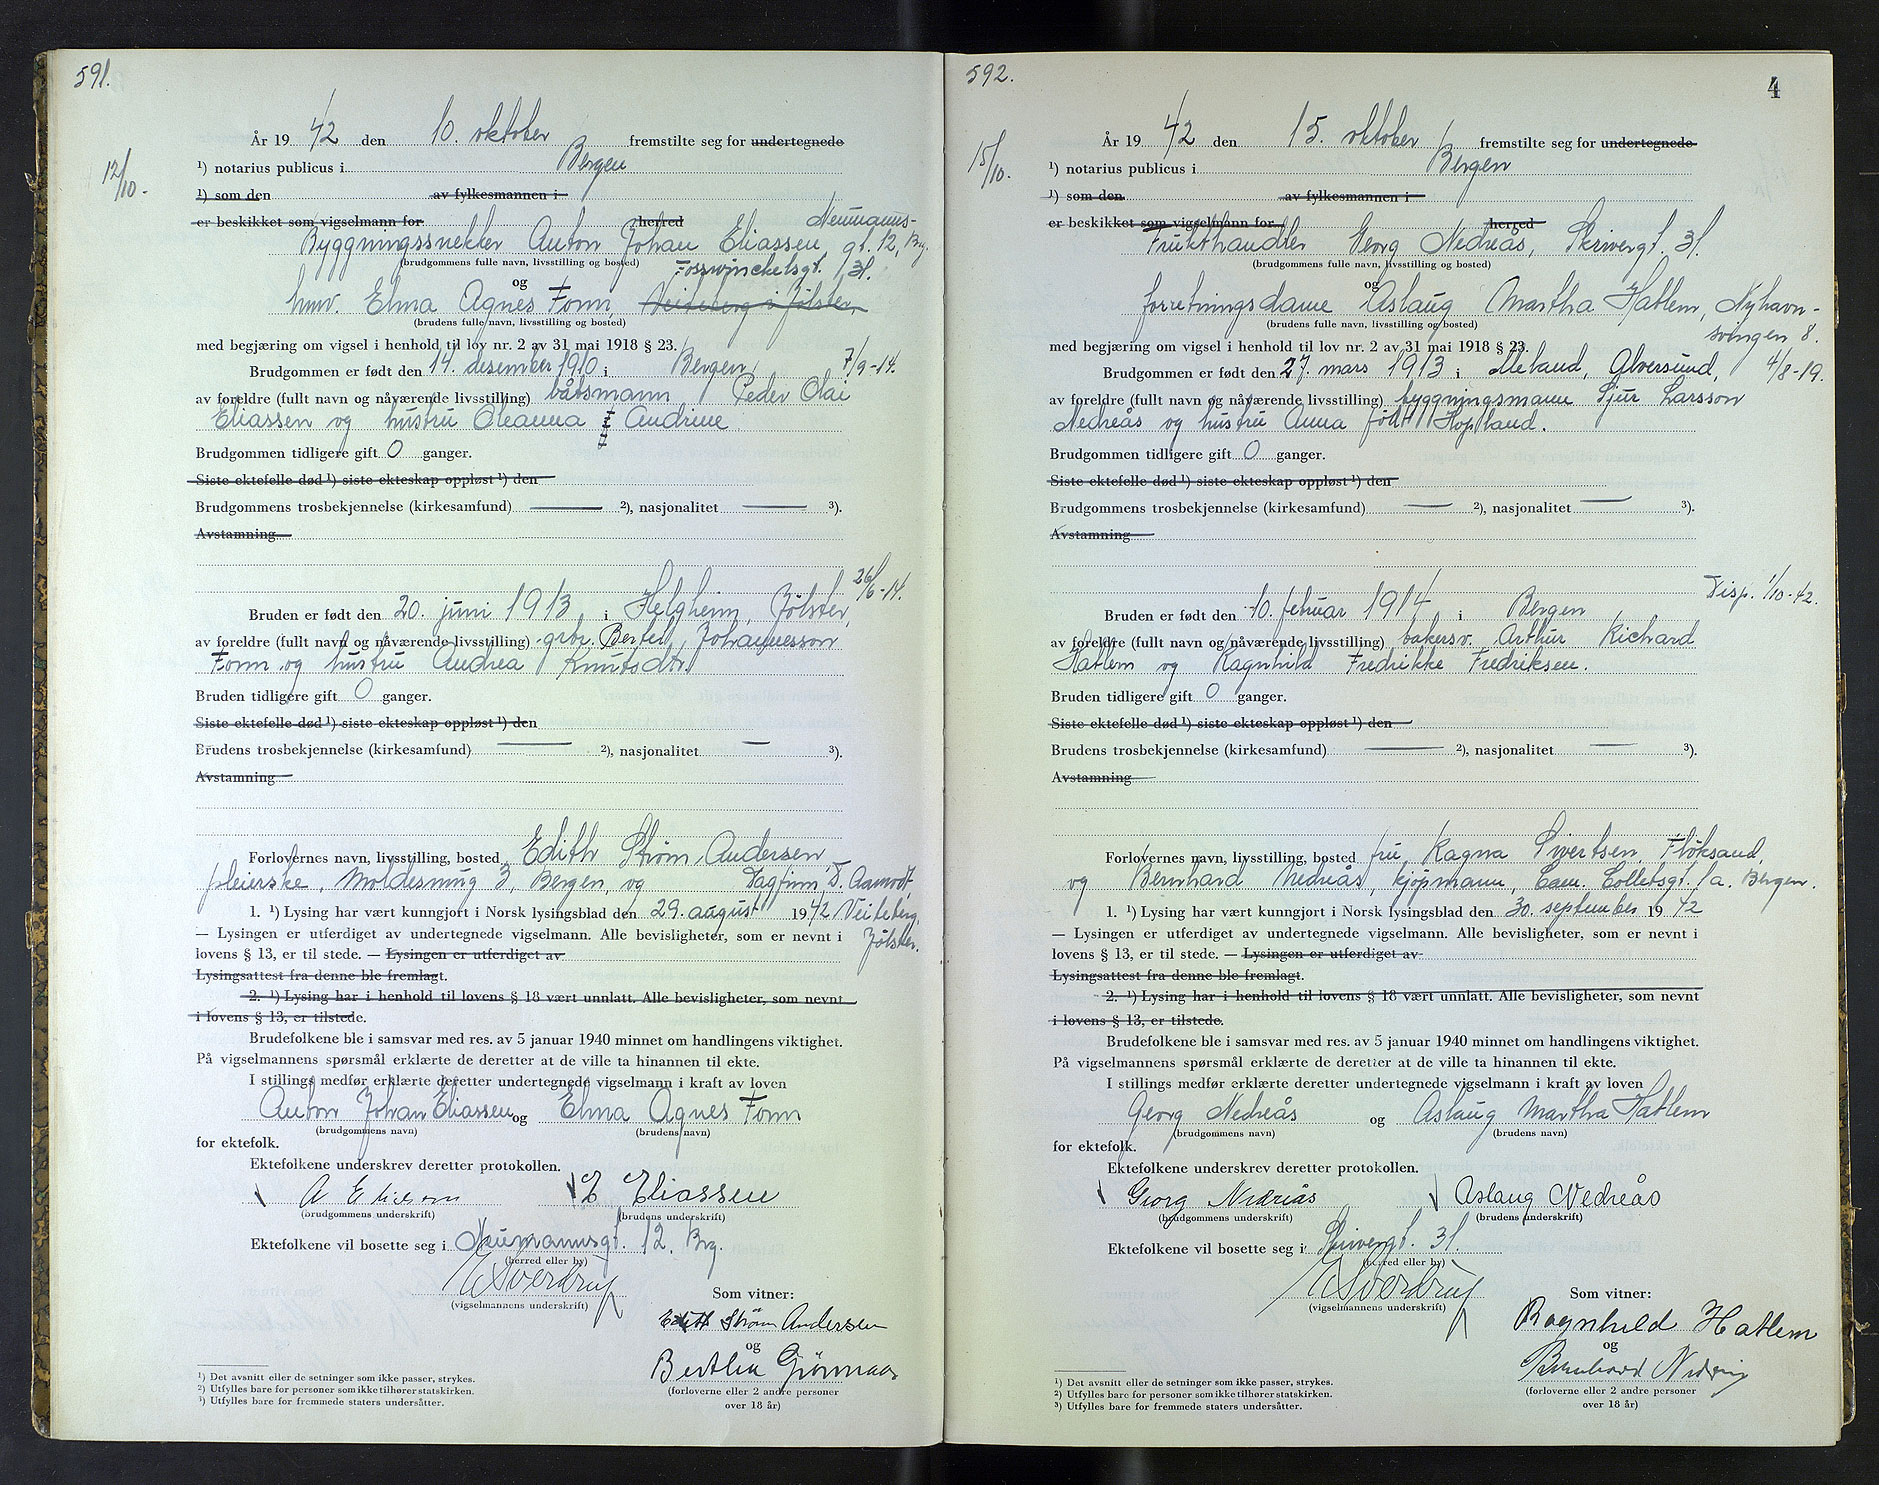 591.
12/10.
År 19 42 den 10. oktober fremstilte seg for undertegnede
¹) notarius publicus i Bergen
¹) som den av fylkesmannen i
er beskikket som vigselmann for herred Neumanns-
Byggningssnekker Anton Johan Eliassen, gt. 12, Brg.
(brudgommens fulle navn, livsstilling og bosted) Fosswinckelsgt. 31.
og
hmv. Elma Agnes Fonn, Veiteberg i Jølster,
(brudens fulle navn, livsstilling og bosted)
med begjæring om vigsel i henhold til lov nr. 2 av 31 mai 1918 § 23.
Brudgommen er født den 14. desember 1910 i Bergen, 7/9-14.
av foreldre (fullt navn og nåværende livsstilling) båtsmann Peder Olai
Eliassen og hustru Oleanna Andrine
Brudgommen tidligere gift 0 ganger.
Siste ektefelle død ¹) siste ekteskap oppløst ¹) den
Brudgommens trosbekjennelse (kirkesamfund) — ²), nasjonalitet — ³).
Avstamning
26/6-14.
Bruden er født den 20. juni 1913 i Helgheim, Jølster,
av foreldre (fullt navn og nåværende livsstilling) grbr. Bertel Johannesson
Fonn og hustru Andrea Knutsdtr.
Bruden tidligere gift 0 ganger.
Siste ektefelle død ¹) siste ekteskap oppløst ¹) den
Brudens trosbekjennelse (kirkesamfund) — ²), nasjonalitet — ³).
Avstamning
Forlovernes navn, livsstilling, bosted Edith Strøm Andersen,
pleierske, Moldesmug 3, Bergen, og Dagfinn D. Aamodt,
1. ¹) Lysing har vært kunngjort i Norsk lysingsblad den 29. august 1942 Veiteberg,
— Lysingen er utferdiget av undertegnede vigselmann. Alle bevisligheter, som er nevnt i Jølster.
lovens § 13, er til stede. — Lysingen er utferdiget av
Lysingsattest fra denne ble fremlagt.
2. ¹) Lysing har i henhold til lovens § 18 vært unnlatt. Alle bevisligheter, som nevnt
i lovens § 13, er tilstede.
Brudefolkene ble i samsvar med res. av 5 januar 1940 minnet om handlingens viktighet.
På vigselmannens spørsmål erklærte de deretter at de ville ta hinannen til ekte.
I stillings medfør erklærte deretter undertegnede vigselmann i kraft av loven
Anton Johan Eliassen og Elma Agnes Fonn
(brudgommens navn) (brudens navn)
for ektefolk.
Ektefolkene underskrev deretter protokollen.
A Eliassen E Eliassen
(brudgommens underskrift) (brudens underskrift)
Ektefolkene vil bosette seg i Neumannsgt. 12. Brg.
(herred eller by)
E Sverdrup
(vigselmannens underskrift) Som vitner:
Edith Strøm Andersen
og
Bertha
(forloverne eller 2 andre personer
over 18 år)
¹) Det avsnitt eller de setninger som ikke passer, strykes.
²) Utfylles bare for personer som ikke tilhører statskirken.
³) Utfylles bare for fremmede staters undersåtter.
592.
4
15/10.
År 19 42 den 15. oktober fremstilte seg for undertegnede
¹) notarius publicus i Bergen
¹) som den av fylkesmannen i
er beskikket som vigselmann for herred
Frukthandler Georg Nedreås, Skivergt. 31.
(brudgommens fulle navn, livsstilling og bosted)
og
forretningsdame Aslaug Martha Hatlem, Nyhavn-
(brudens fulle navn, livsstilling og bosted) svingen 8.
med begjæring om vigsel i henhold til lov nr. 2 av 31 mai 1918 § 23.
Brudgommen er født den 27. mars 1913 i Meland, Alversund, 4/8-19.
av foreldre (fullt navn og nåværende livsstilling) byggningsmann Sjur Larsson
Nedreås og hustru Anna født Hopland.
Brudgommen tidligere gift 0 ganger.
Siste ektefelle død ¹) siste ekteskap oppløst ¹) den
Brudgommens trosbekjennelse (kirkesamfund) — ²), nasjonalitet — ³).
Avstamning
Disp. 1/10-42.
Bruden er født den 10. februar 1914 i Bergen
av foreldre (fullt navn og nåværende livsstilling) bakersv. Arthur Richard
Hatlem og Ragnhild Fredrikke Fredriksen.
Bruden tidligere gift 0 ganger.
Siste ektefelle død ¹) siste ekteskap oppløst ¹) den
Brudens trosbekjennelse (kirkesamfund) — ²), nasjonalitet — ³).
Avstamning
Forlovernes navn, livsstilling, bosted fru Ragna Sivertsen, Fløksand,
og Bernhard Nedreås, kjøpmann, Cam. Collettsgt. 1a. Bergen.
1. ¹) Lysing har vært kunngjort i Norsk lysingsblad den 30. september 1942
— Lysingen er utferdiget av undertegnede vigselmann. Alle bevisligheter, som er nevnt i
lovens § 13, er til stede. — Lysingen er utferdiget av
Lysingsattest fra denne ble fremlagt.
2. ¹) Lysing har i henhold til lovens § 18 vært unnlatt. Alle bevisligheter, som nevnt
i lovens § 13, er tilstede.
Brudefolkene ble i samsvar med res. av 5 januar 1940 minnet om handlingens viktighet.
På vigselmannens spørsmål erklærte de deretter at de ville ta hinannen til ekte.
I stillings medfør erklærte deretter undertegnede vigselmann i kraft av loven
Georg Nedreås og Aslaug Martha Hatlem
(brudgommens navn) (brudens navn)
for ektefolk.
Ektefolkene underskrev deretter protokollen.
Georg Nedreås Aslaug Nedreås
(brudgommens underskrift) (brudens underskrift)
Ektefolkene vil bosette seg i Skivergt. 31.
(herred eller by)
E Sverdrup
(vigselmannens underskrift) Som vitner:
Ragnhild Hatlem
og
Bernhard Nedreås
(forloverne eller 2 andre personer
over 18 år)
¹) Det avsnitt eller de setninger som ikke passer, strykes.
²) Utfylles bare for personer som ikke tilhører statskirken.
³) Utfylles bare for fremmede staters undersåtter.